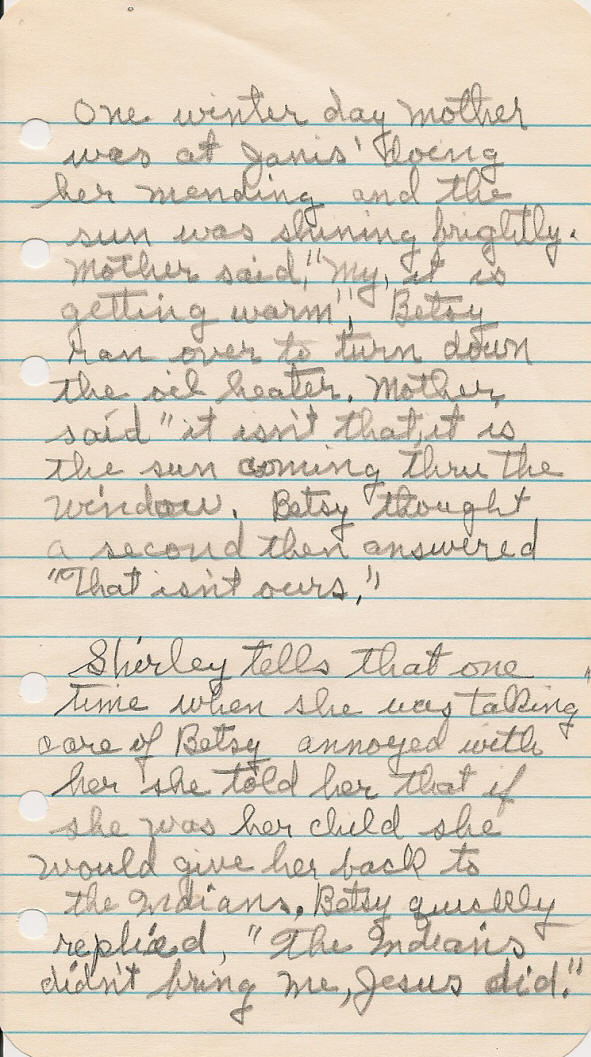 One winter day mother
was at Janis' doing
her mending and the
sun was shining brightly.
Mother said, "My, it is
getting warm", Betsy
ran over to turn down
the oil heater. Mother
said "it isn't that, it is
the sun coming thru the
window. Betsy thought
a second then answered
"That isn't ours."
Shirley tells that one
time when she was taking
care of Betsy annoyed with
her she told her that if
she was her child she
would give her back to
the Indians. Betsy quickly
replied, "The Indians
didn't bring me, Jesus did."